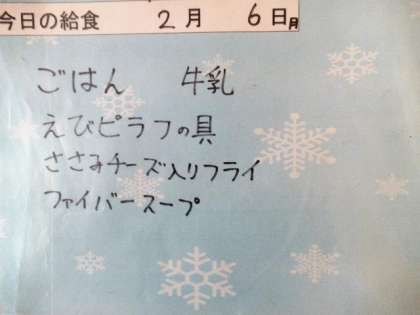 今日の給食 2月 6日月
ごはん 牛乳
えびピラフの具
ささみチーズ入りフライ
ファイバースープ